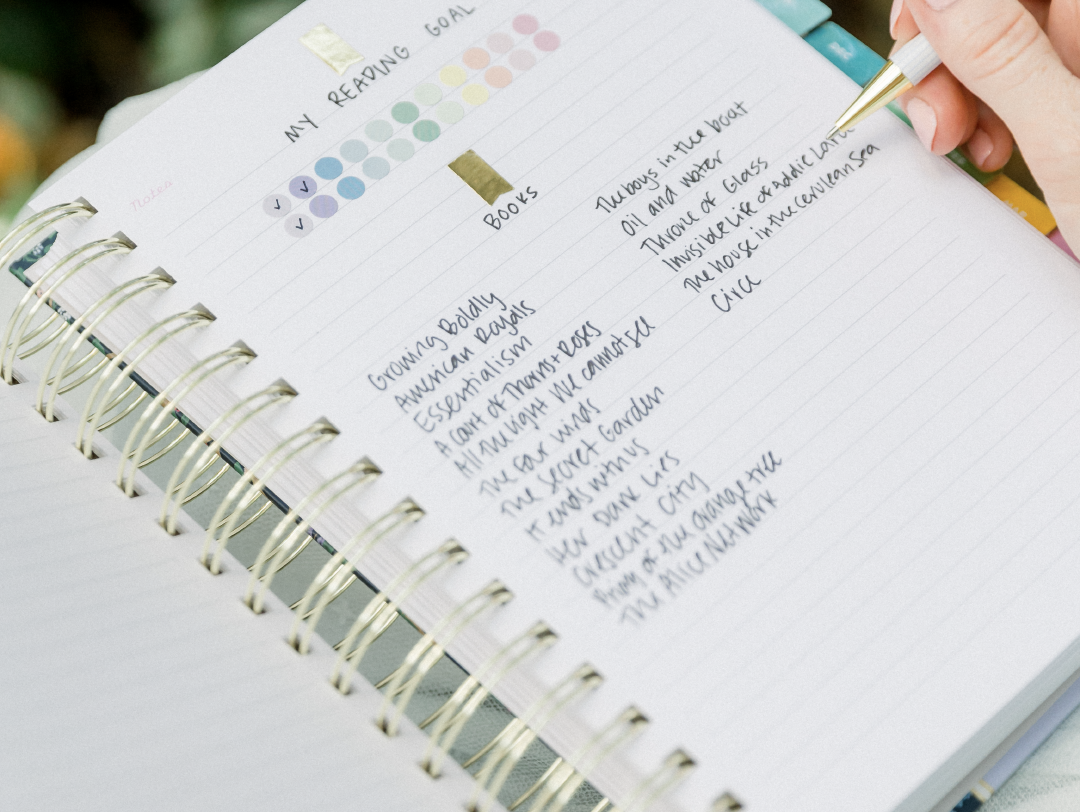 Notes
MY READING GOAL
✓ ✓
✓
BOOKS
Growing Boldly
American Royals
Essentialism
A Court of Thorns + Roses
All the light We cannot see
The Four Winds
The Secret Garden
It ends with us
Her Dark Lies
Crescent City
Priory of the orange tree
The Alice Network
The boys in the boat
Oil and Water
Throne of Glass
Invisible Life of Addie Laru
The House in the Cerulean Sea
Circe